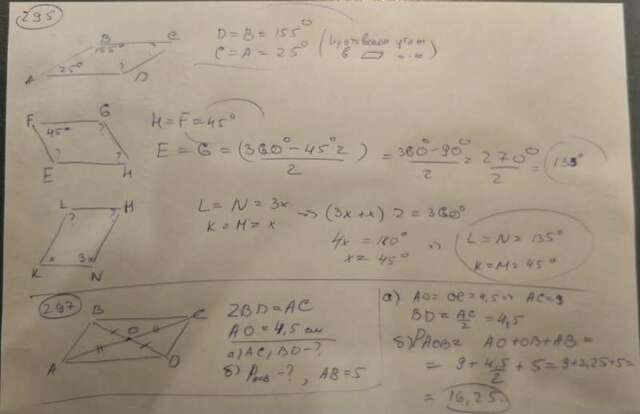 295
B C
155°
25°
A D
D = B = 155°
C = A = 25°
F G
45° ?
? ?
E H
H = F = 45°
E = G = (360° - 45°·2 / 2) = 360° - 90° / 2 = 270° / 2 = 135°
L M
? ?
x 3x
K N
L = N = 3x
K = M = x
⇒ (3x+x) 2 = 360°
4x = 180°
x = 45°
⇒ L = N = 135°
K = M = 45°
297
B C
O
A D
2BD = AC
AO = 4,5 см
а) AC, BD - ?
б) PAOB - ?, AB = 5
а) AO = OC = 4,5 ⇒ AC = 9
BD = AC / 2 = 4,5
б) PAOB = AO + OB + AB =
= 9 + 4,5 / 2 + 5 = 9 + 2,25 + 5 =
= 16,25